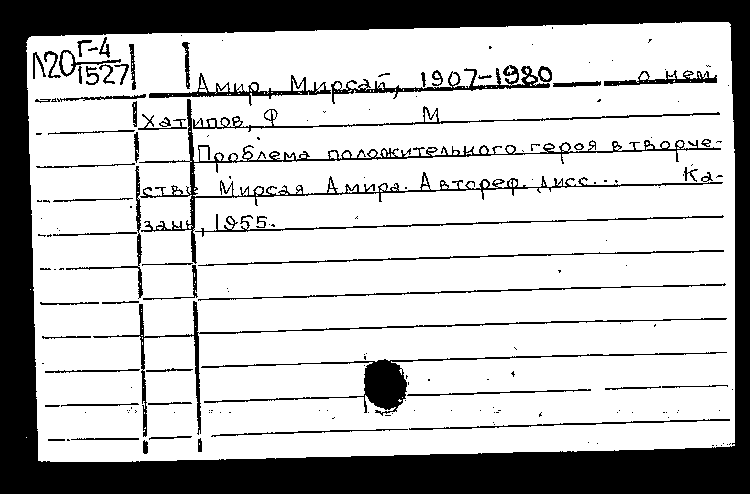 Л20 Г-4
1527
Амир, Мирсай, 1907-1980 о нем
Хатипов, Ф М
Проблема положительного героя в творче-
стве Мирсая Амира. Автореф. дисс... Ка-
зань, 1955.